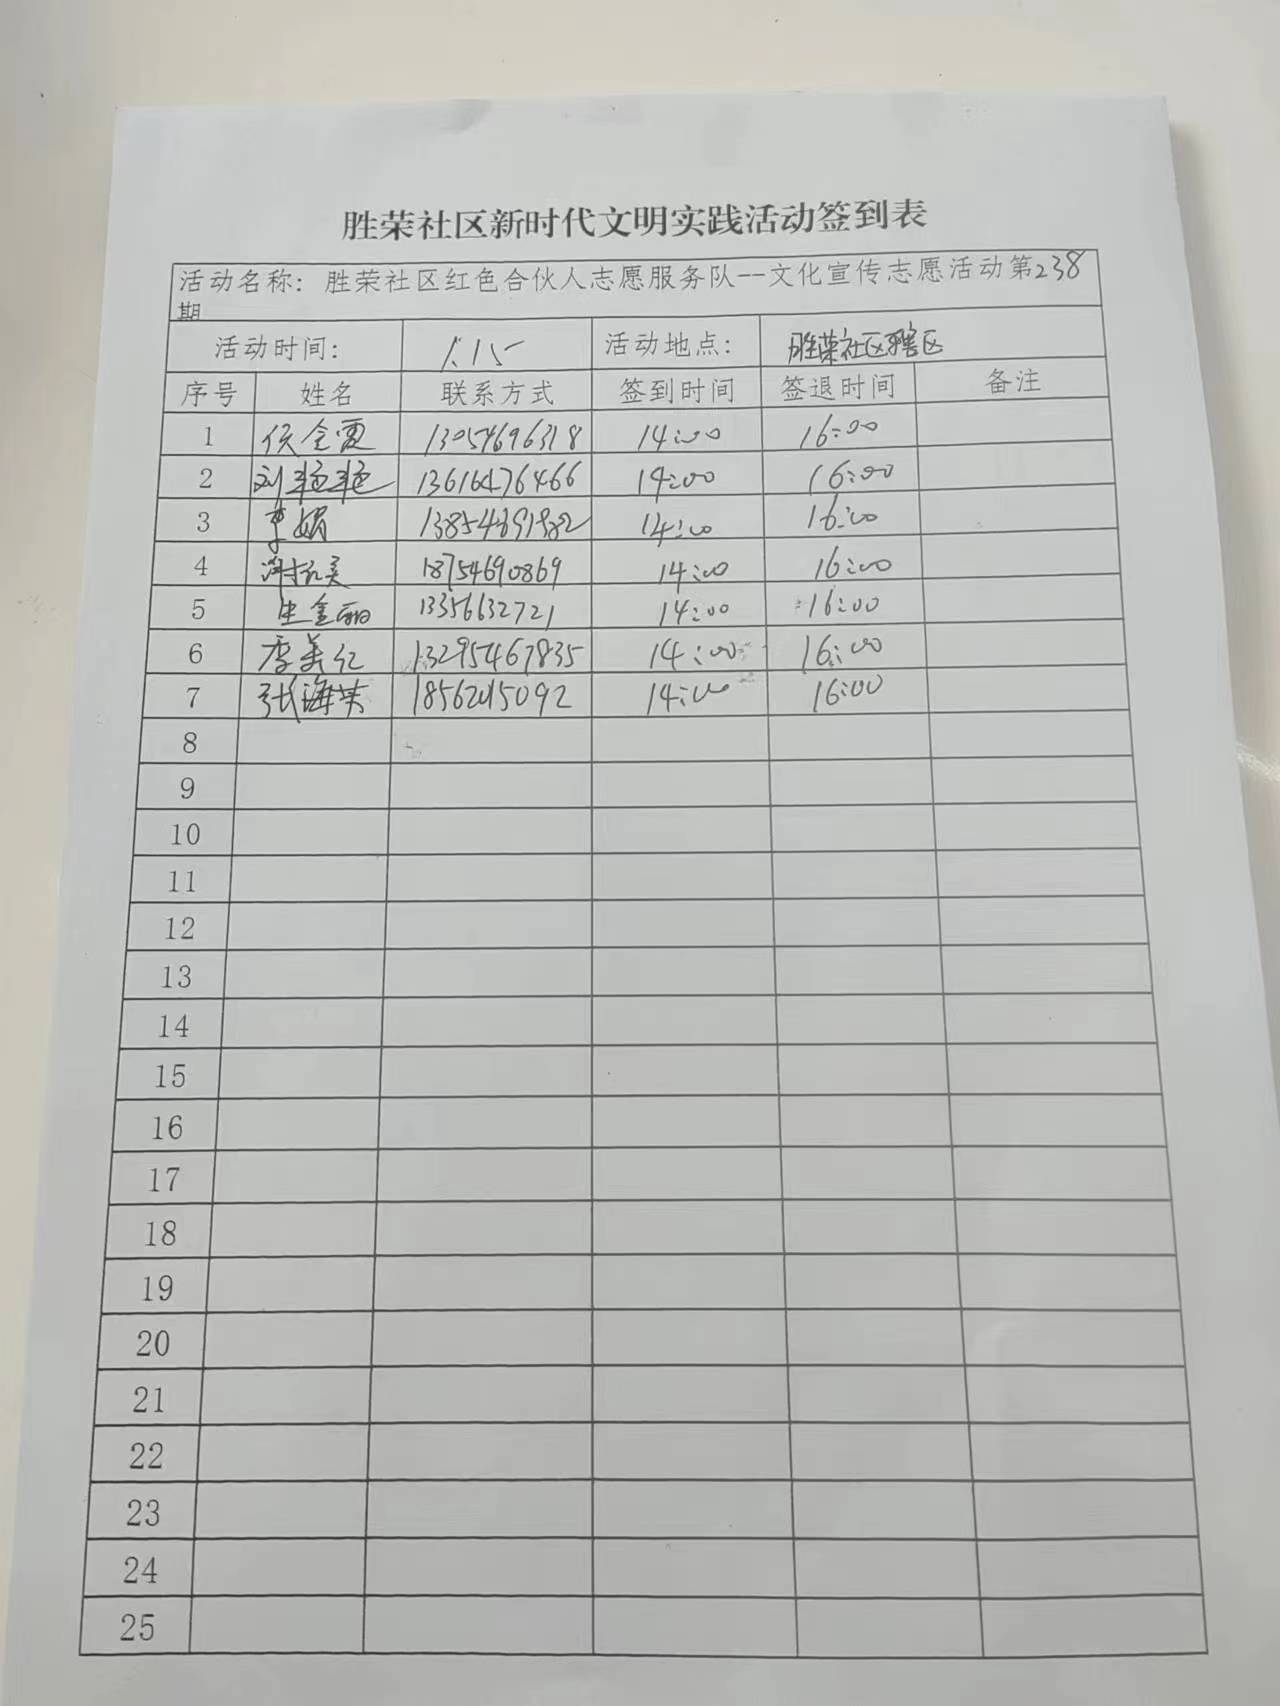 胜荣社区新时代文明实践活动签到表
活动名称：胜荣社区红色合伙人志愿服务队--文化宣传志愿活动第238
期
活动时间： 1.15 活动地点： 胜荣社区辖区
序号 姓名 联系方式 签到时间 签退时间 备注
1 侯全霞 13054696318 14:00 16:00
2 刘艳艳 13616476466 14:00 16:00
3 李娟 14:00 16:00
4 18754690869 14:00 16:00
5 生金丽 13356632721 14:00 16:00
6 李美红 13295467835 14:00 16:00
7 张海英 18562015092 14:00 16:00
8
9
10
11
12
13
14
15
16
17
18
19
20
21
22
23
24
25